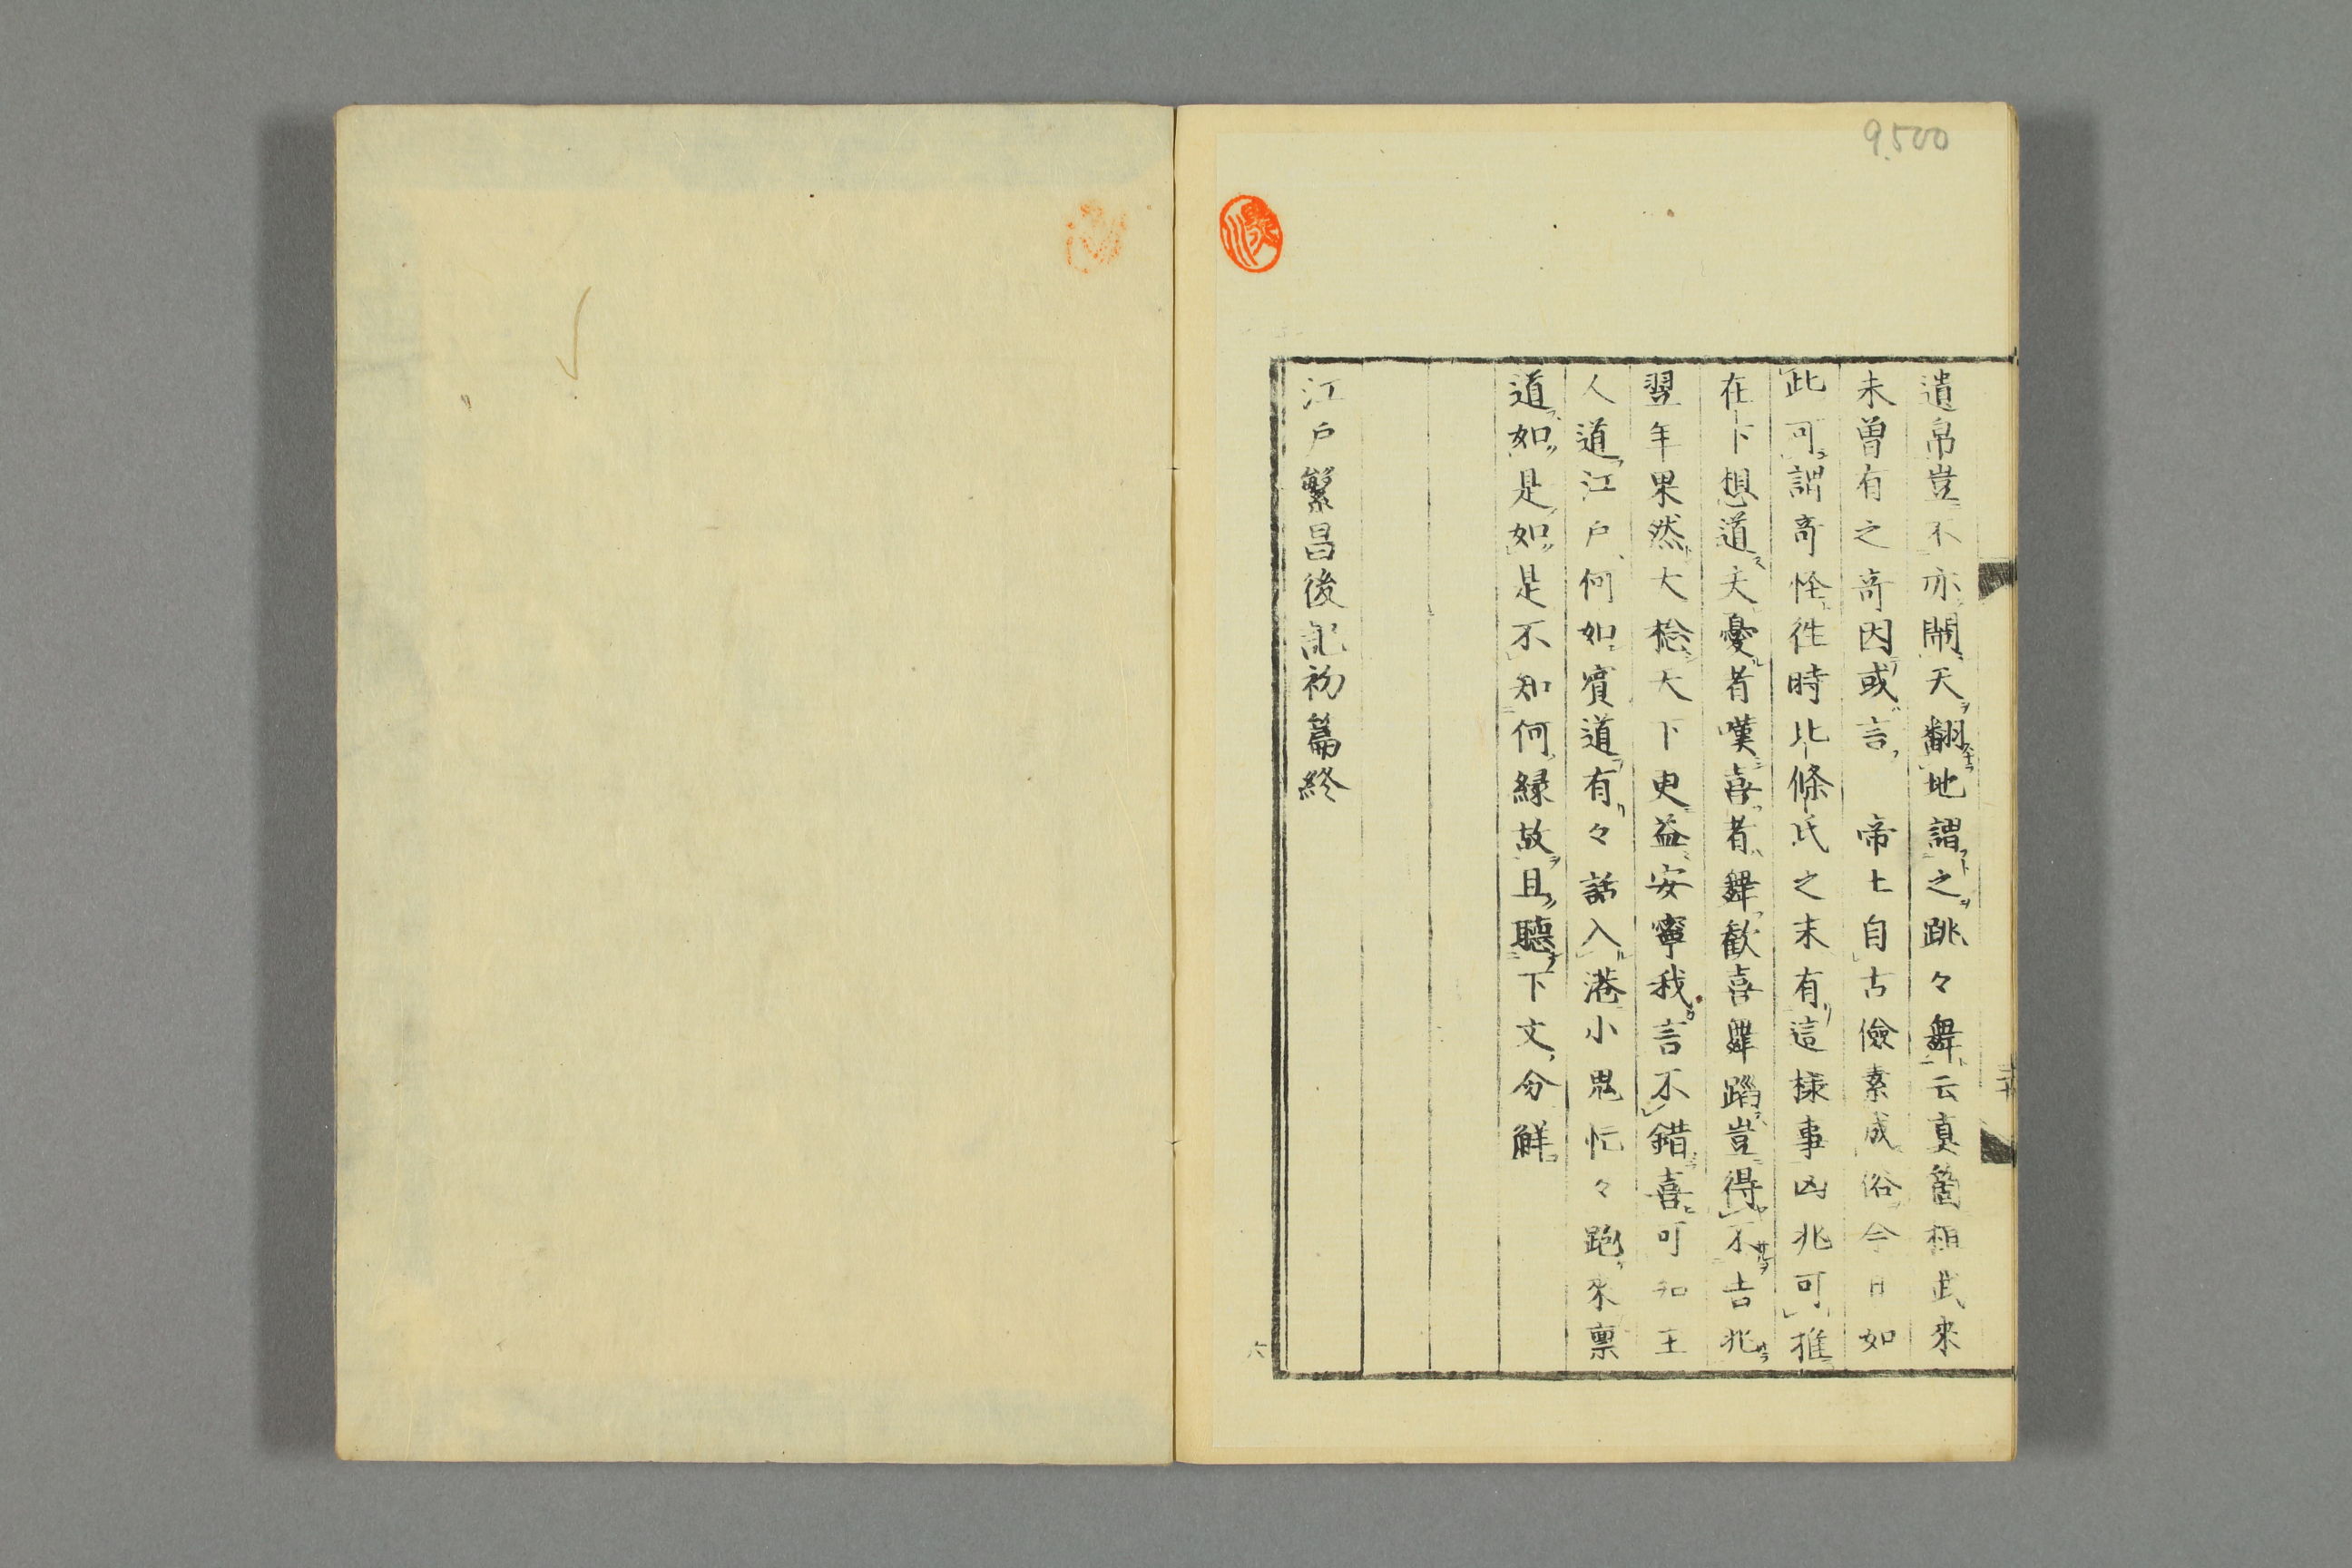 9.500
遺帛豈不亦鬧天翻地謂之跳々舞云真箇相武來
未曾有之奇因或言　帝七自古儉素成俗今日如
此可謂奇怪徃時北條氏之末有這樣事凶兆可推
在下想道夫憂者嘆喜者舞歓喜舞蹈豈得不吉兆
翌年果然大稔天下更益安寧我言不錯喜可知王
人道江戸何如賓道有々話入港小鬼忙々跑來禀
道如是如是不知何縁故且聽下文分觧
江戸繁昌後記初篇終
六